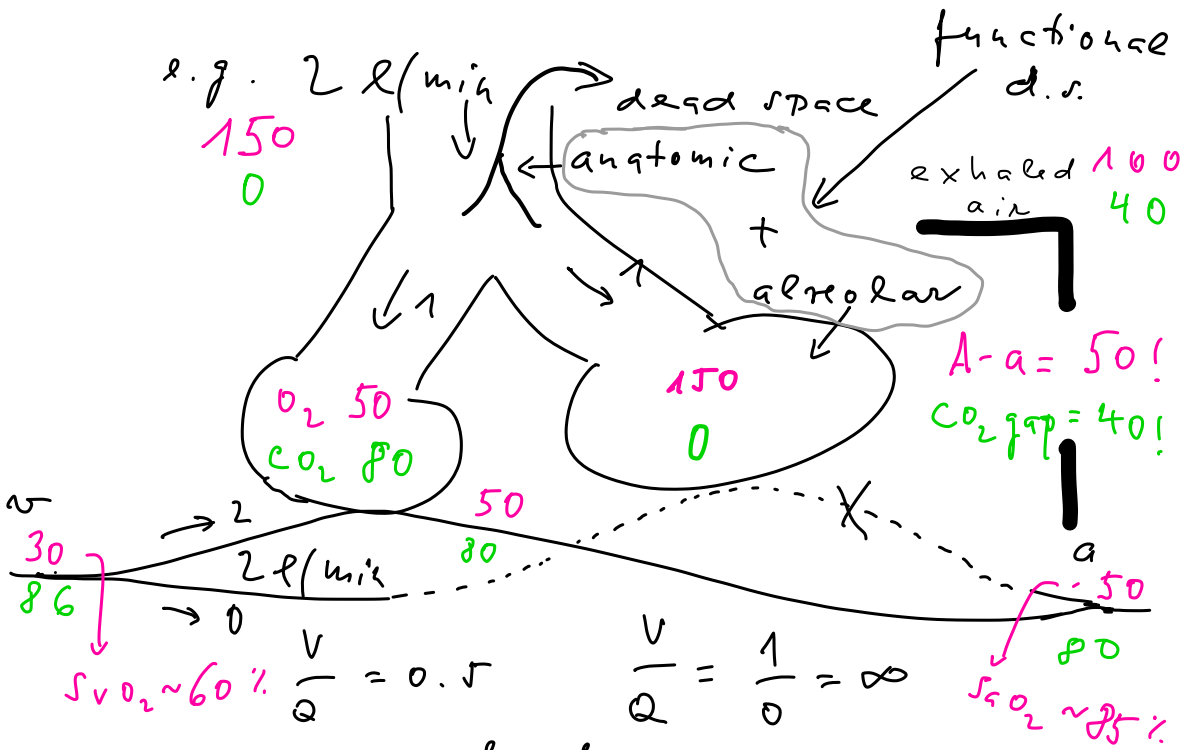 e.g. 2 l/min
150
0
functional
d.s.
dead space
anatomic
+
alveolar
exhaled
air
100
40
1
1
O2 50
CO2 80
150
0
A-a = 50!
CO2 gap = 40!
v
30
86
2
2 l/min
0
50
80
a
50
80
SvO2 ~ 60 %
V/Q = 0.5
V/Q = 1/0 = ∞
SaO2 ~ 85 %